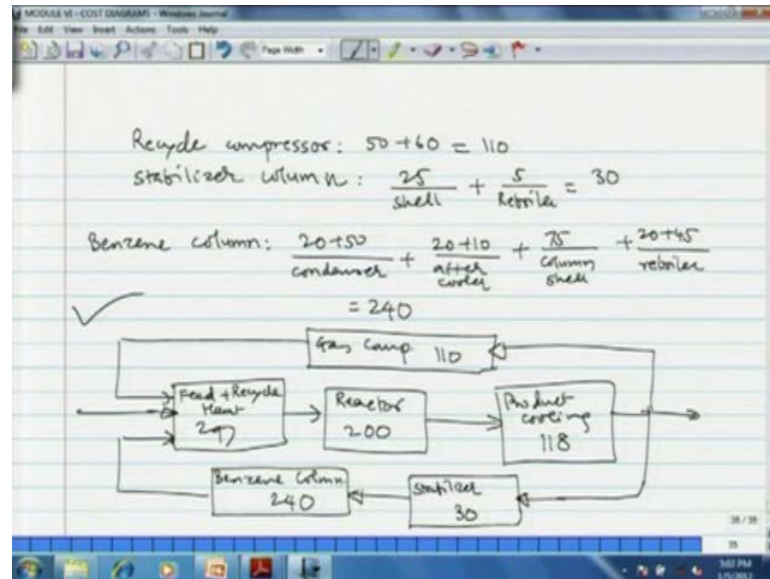 MODULE VI - COST DIAGRAMS - Windows Journal
File Edit View Insert Actions Tools Help
Page Width
Recycle compressor: 50+60 = 110
stabilizer column: 25/shell + 5/Reboiler = 30
Benzene column: 20+50/condenser + 20+10/after cooler + 75/column shell + 20+45/reboiler
= 240
Gas Comp 110
Feed + Recycle Heat 297
Reactor 200
Product cooling 118
Benzene Column 240
Stabilizer 30
38 / 38
35
3:02 PM
1/5/2012